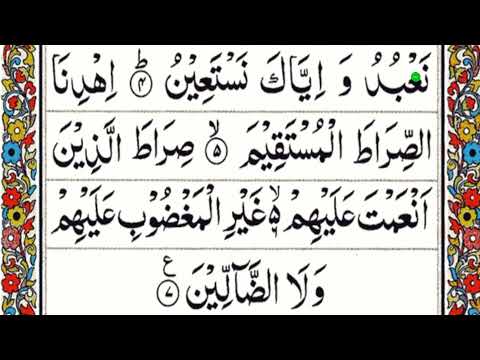 نَعْبُدُ وَ اِيَّاكَ نَسْتَعِيْنُ ؕ﴿۴﴾ اِهْدِنَا
الصِّرَاطَ الْمُسْتَقِيْمَ ۙ﴿۵﴾ صِرَاطَ الَّذِيْنَ
اَنْعَمْتَ عَلَيْهِمْ ۙ۬ۦ غَيْرِ الْمَغْضُوْبِ عَلَيْهِمْ
وَلَا الضَّآلِّيْنَ ﴿۷﴾ ع